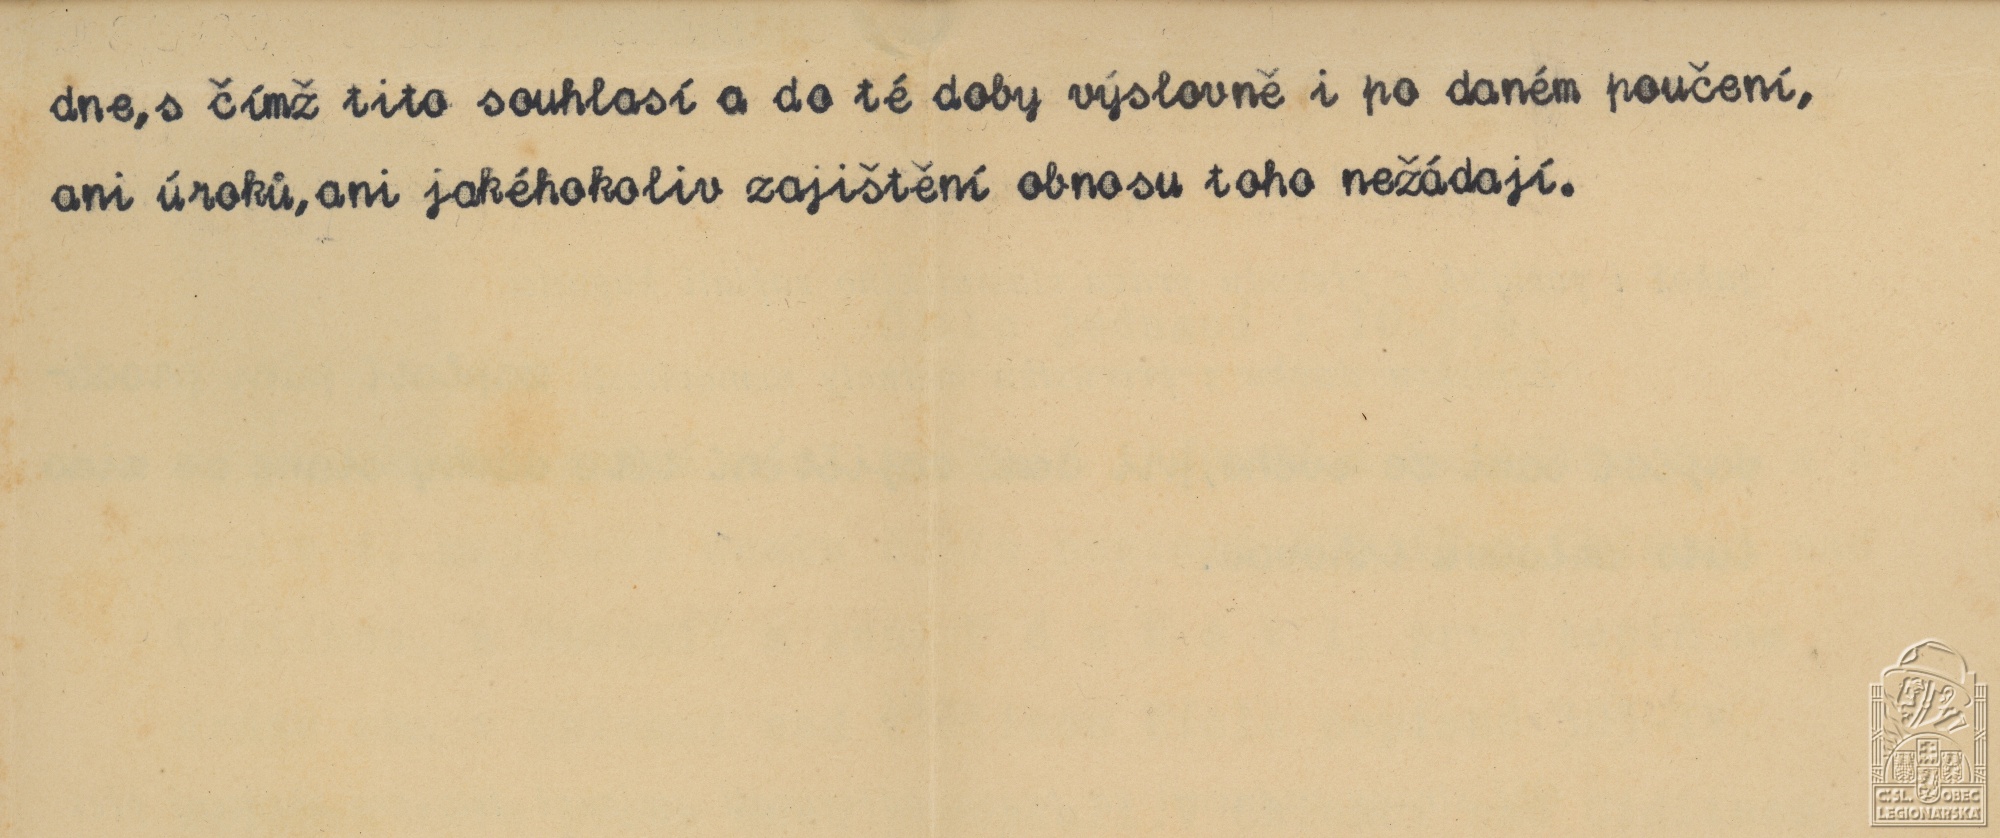 dne,s čímž tito souhlasí a do té doby výslovně i po daném poučení,
ani úroků,ani jakéhokoliv zajištění obnosu toho nežádají.
Č.SL. OBEC
LEGIONÁŘSKÁ